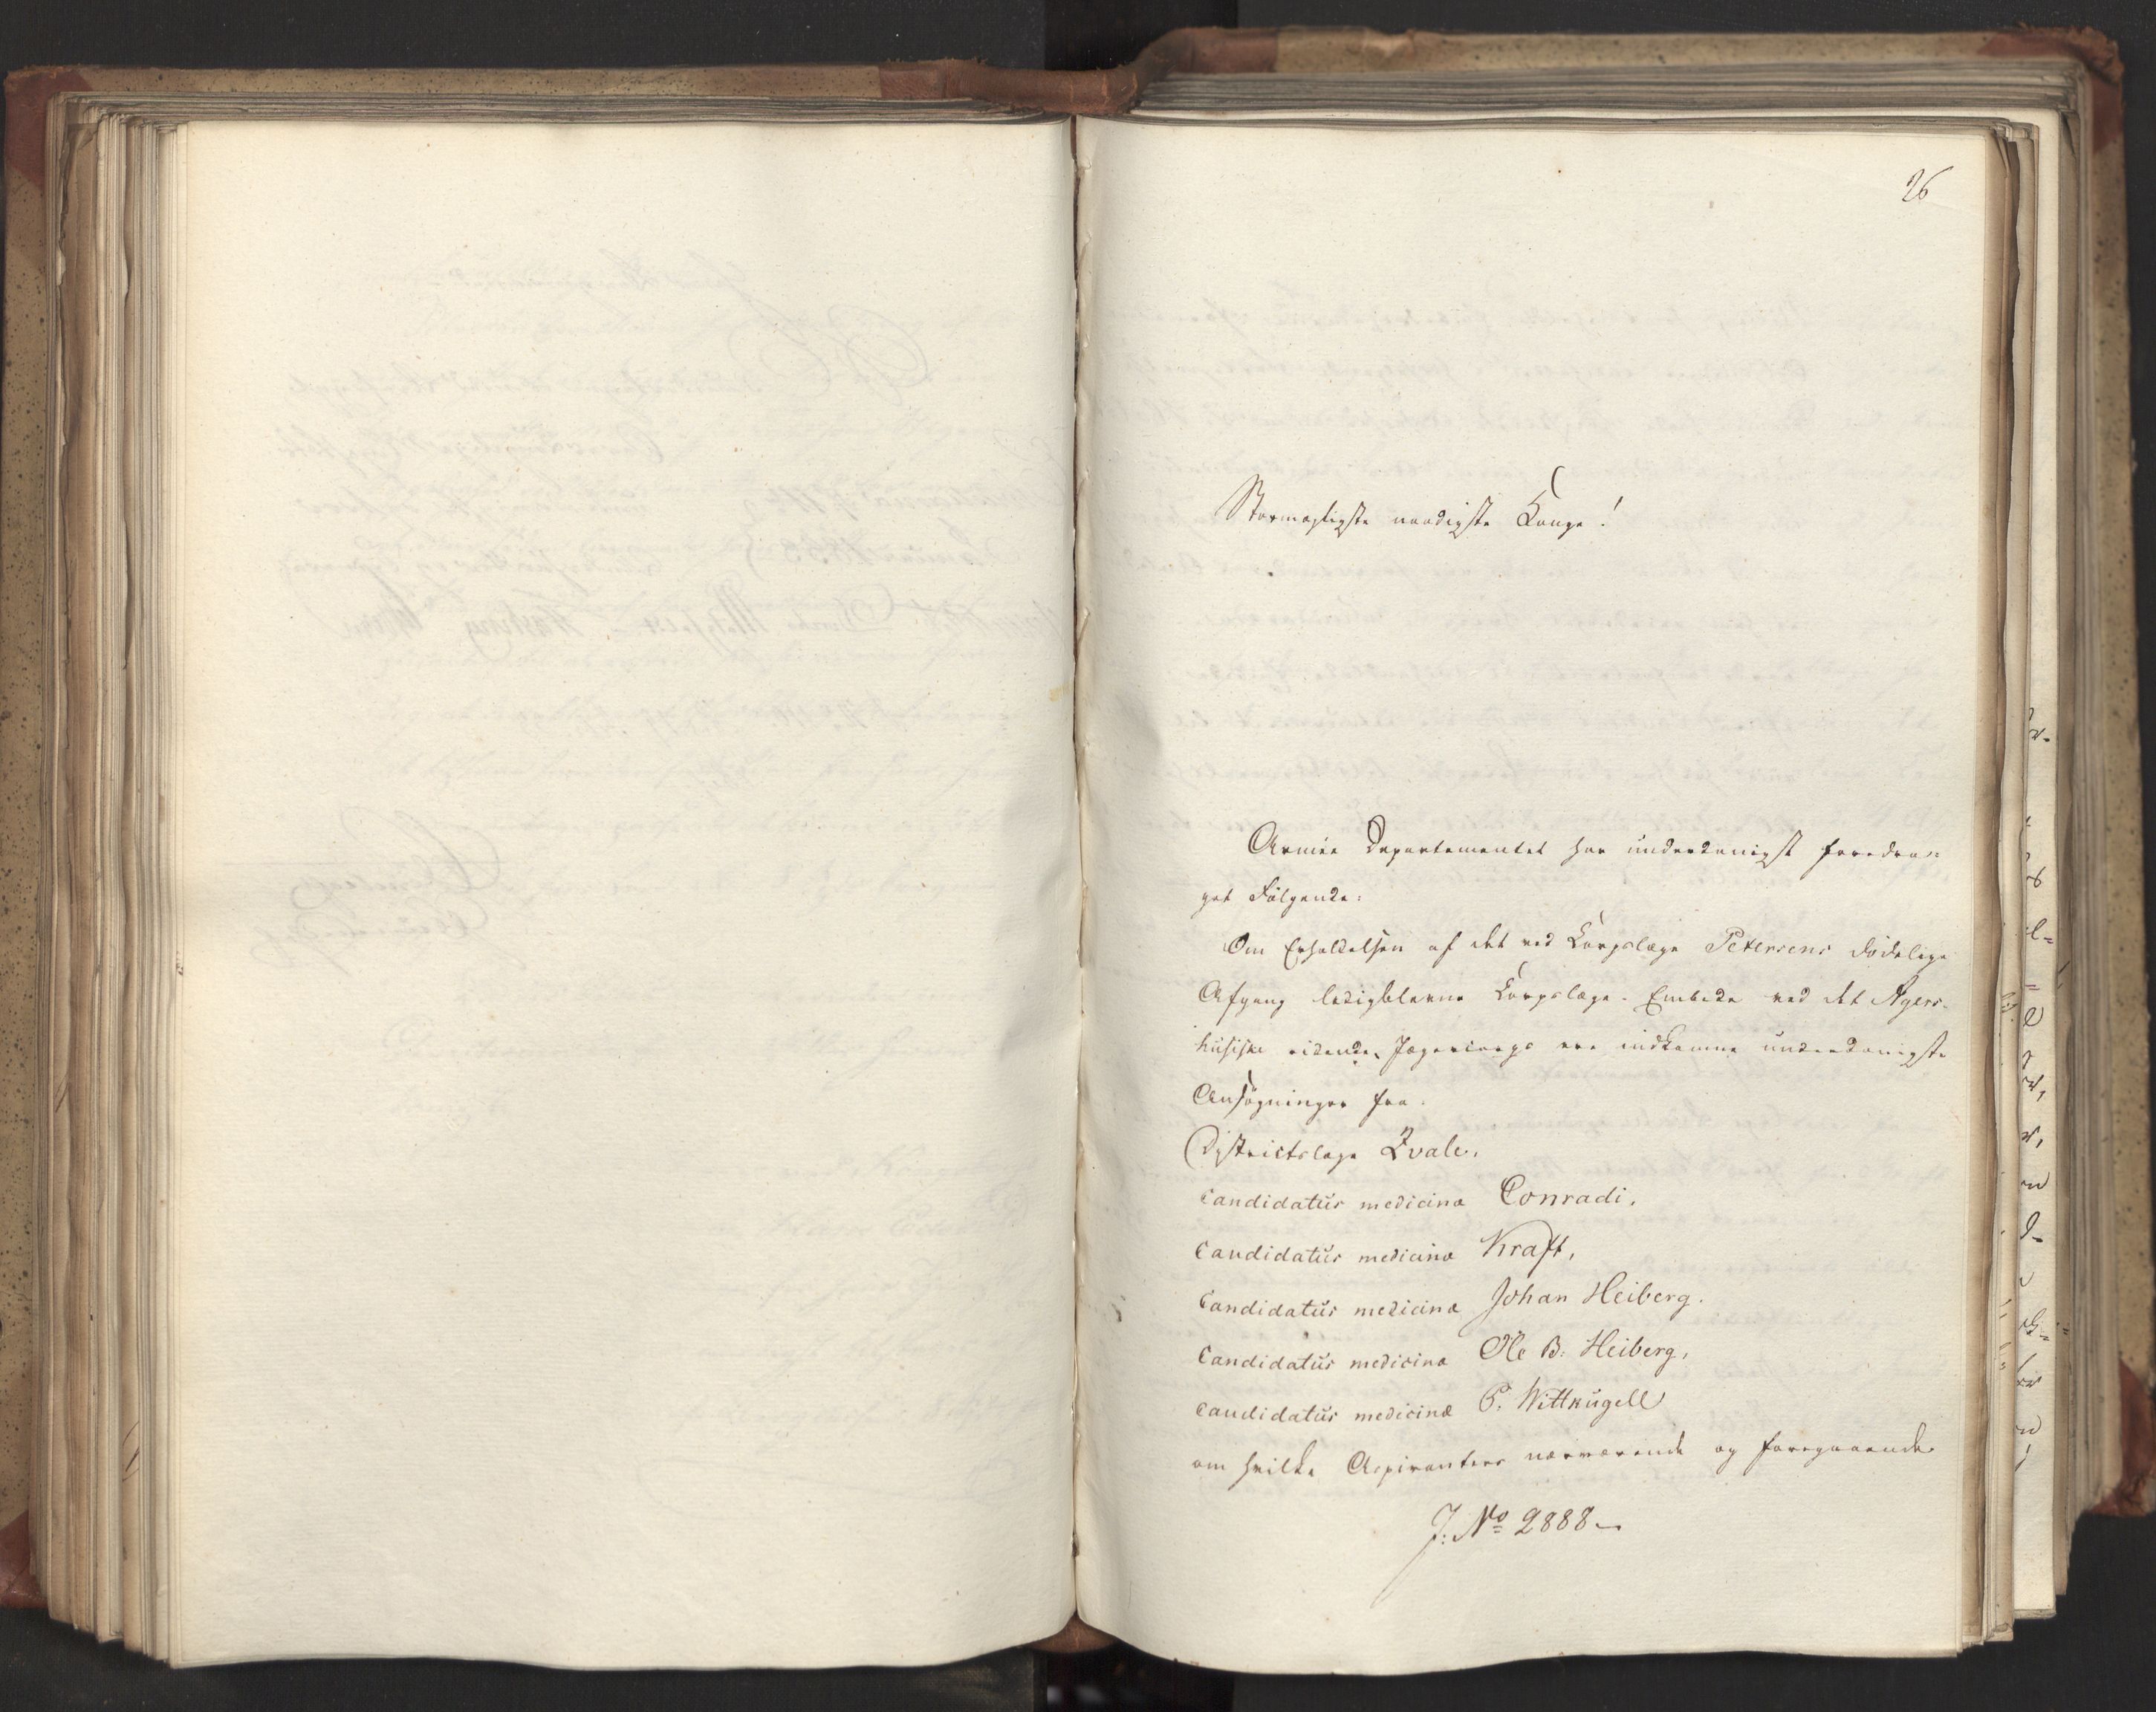 26
Stormægtigste naadigste Konge!
Armée Departementet har underdanigst foredra-
get Følgende:
Om Erholdelsen af det ved Corpslæge Petersens dødelige
Afgang ledigblevne Corpslæge-Embede ved det Agers-
husiske ridende Jægercorps ere indkomne underdanigste
Ansøgninger fra
Districtslæge Qvale,
Candidatus medicinæ Conradi,
Candidatus medicinæ Kraft,
Candidatus medicinæ Johan Heiberg.
Candidatus medicinæ Ole B: Heiberg,
Candidatus medicinæ C. Wittkugell
om hvilke Aspiranters nærværende og foregaaende
J: No 2888-